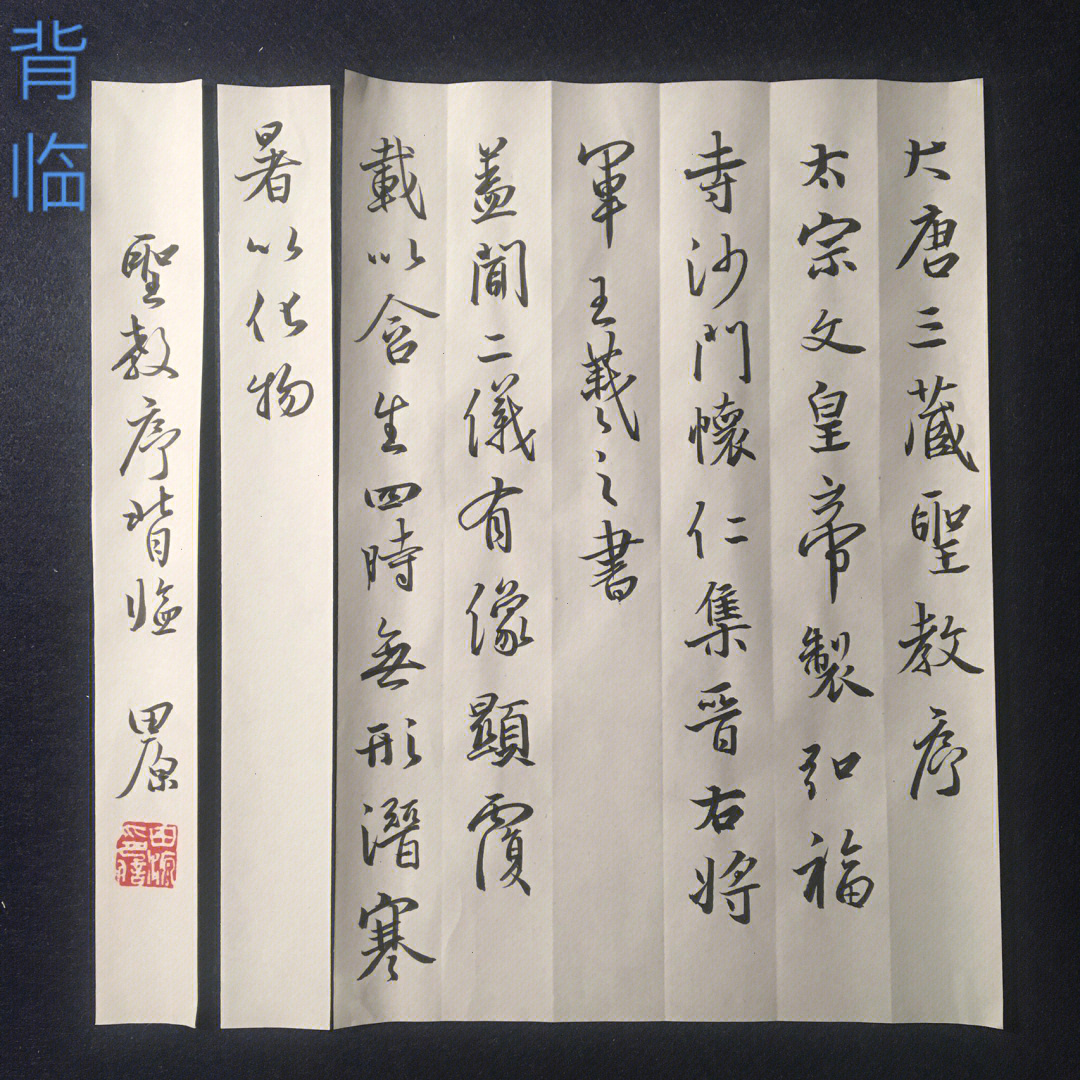 背临
大唐三藏聖教序
太宗文皇帝製弘福
寺沙門懷仁集晋右将
軍王羲之書
蓋聞二儀有像顯覆
載以含生四時無形潛寒
暑以化物
聖教序背临 田原